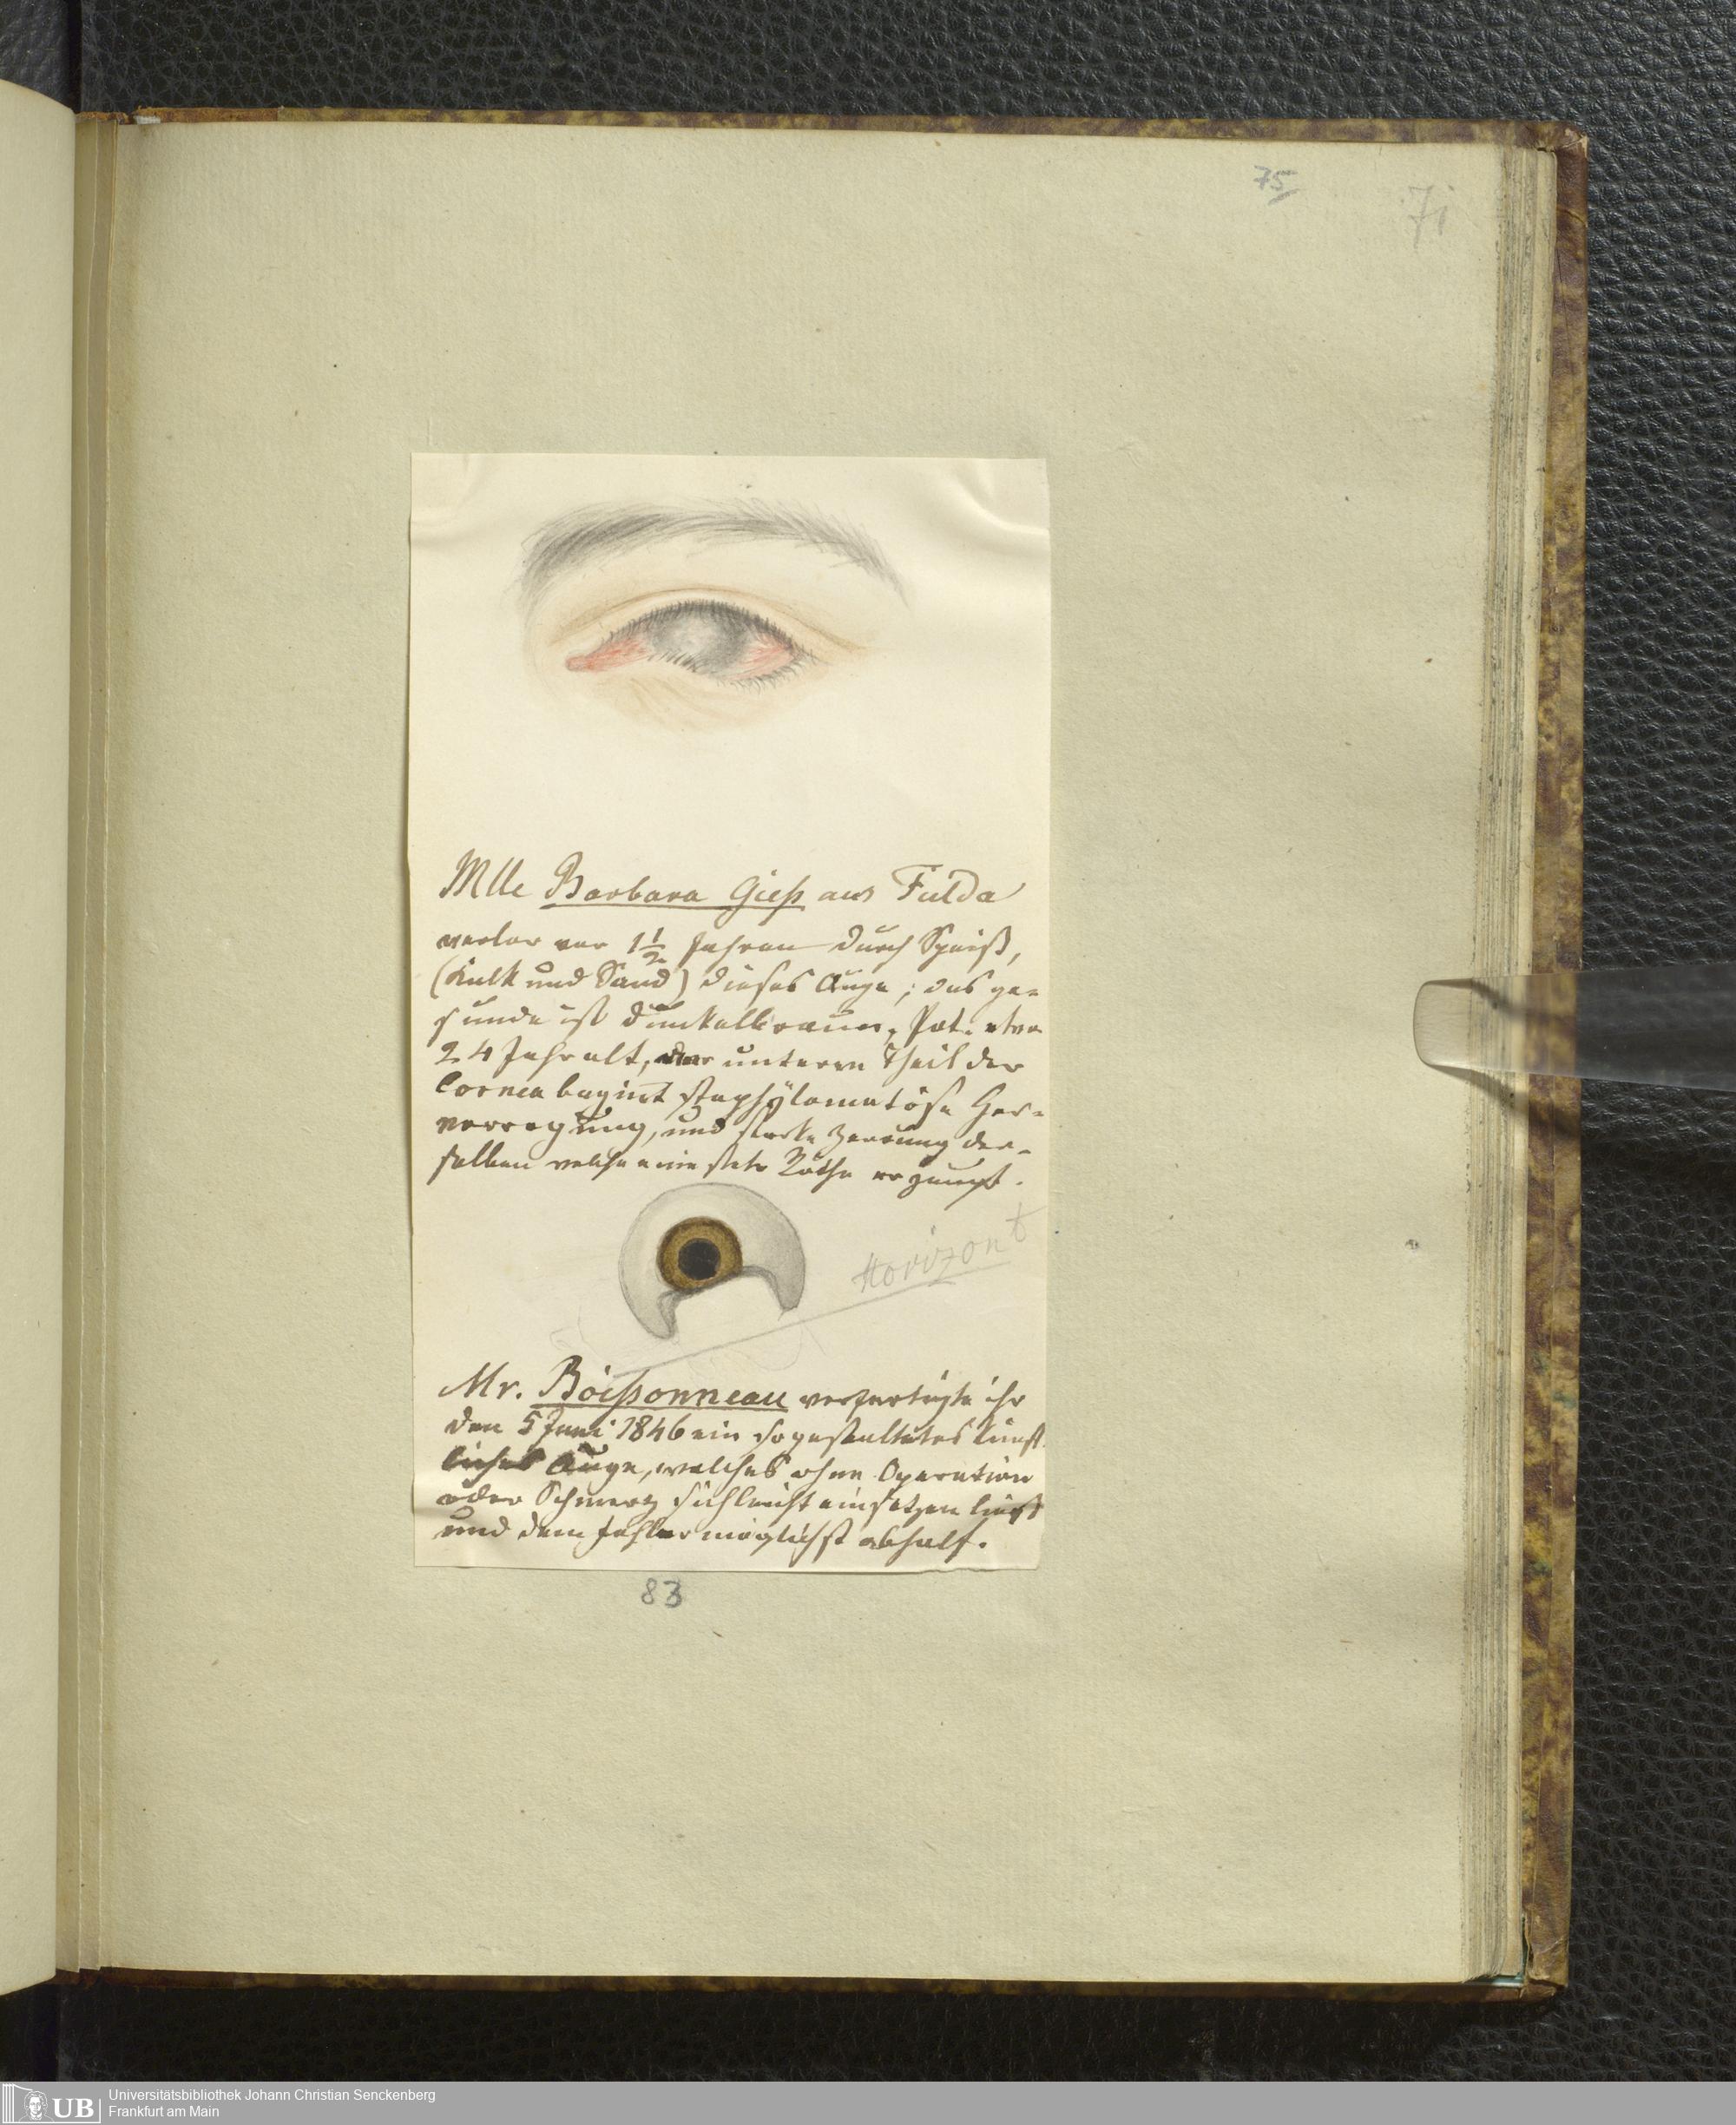 75
71
Mlle Barbara Gieß aus Fulda
verlor vor 1 1/2 Jahren durch Speiß,
(Kalk und Sand) dieses Auge; das ge-
sunde ist dunkelbraun, Pat. etwa
24 Jahr alt, der untere Theil der
Cornea beginnt staphÿlomatöse Her-
vorragung, und starke Zerrung der-
selben welche eine stete Röthe erzeugt.
Horizont
Mr. Boißonneau verfertigte ihr
den 5 Juni 1846 ein so gestaltetes künst-
liches Auge, welches ohne Operation
oder Schmerz sich leicht einsetzen ließ
und dem Fehler möglichst abhalf.
83
UB
Universitätsbibliothek Johann Christian Senckenberg
Frankfurt am Main